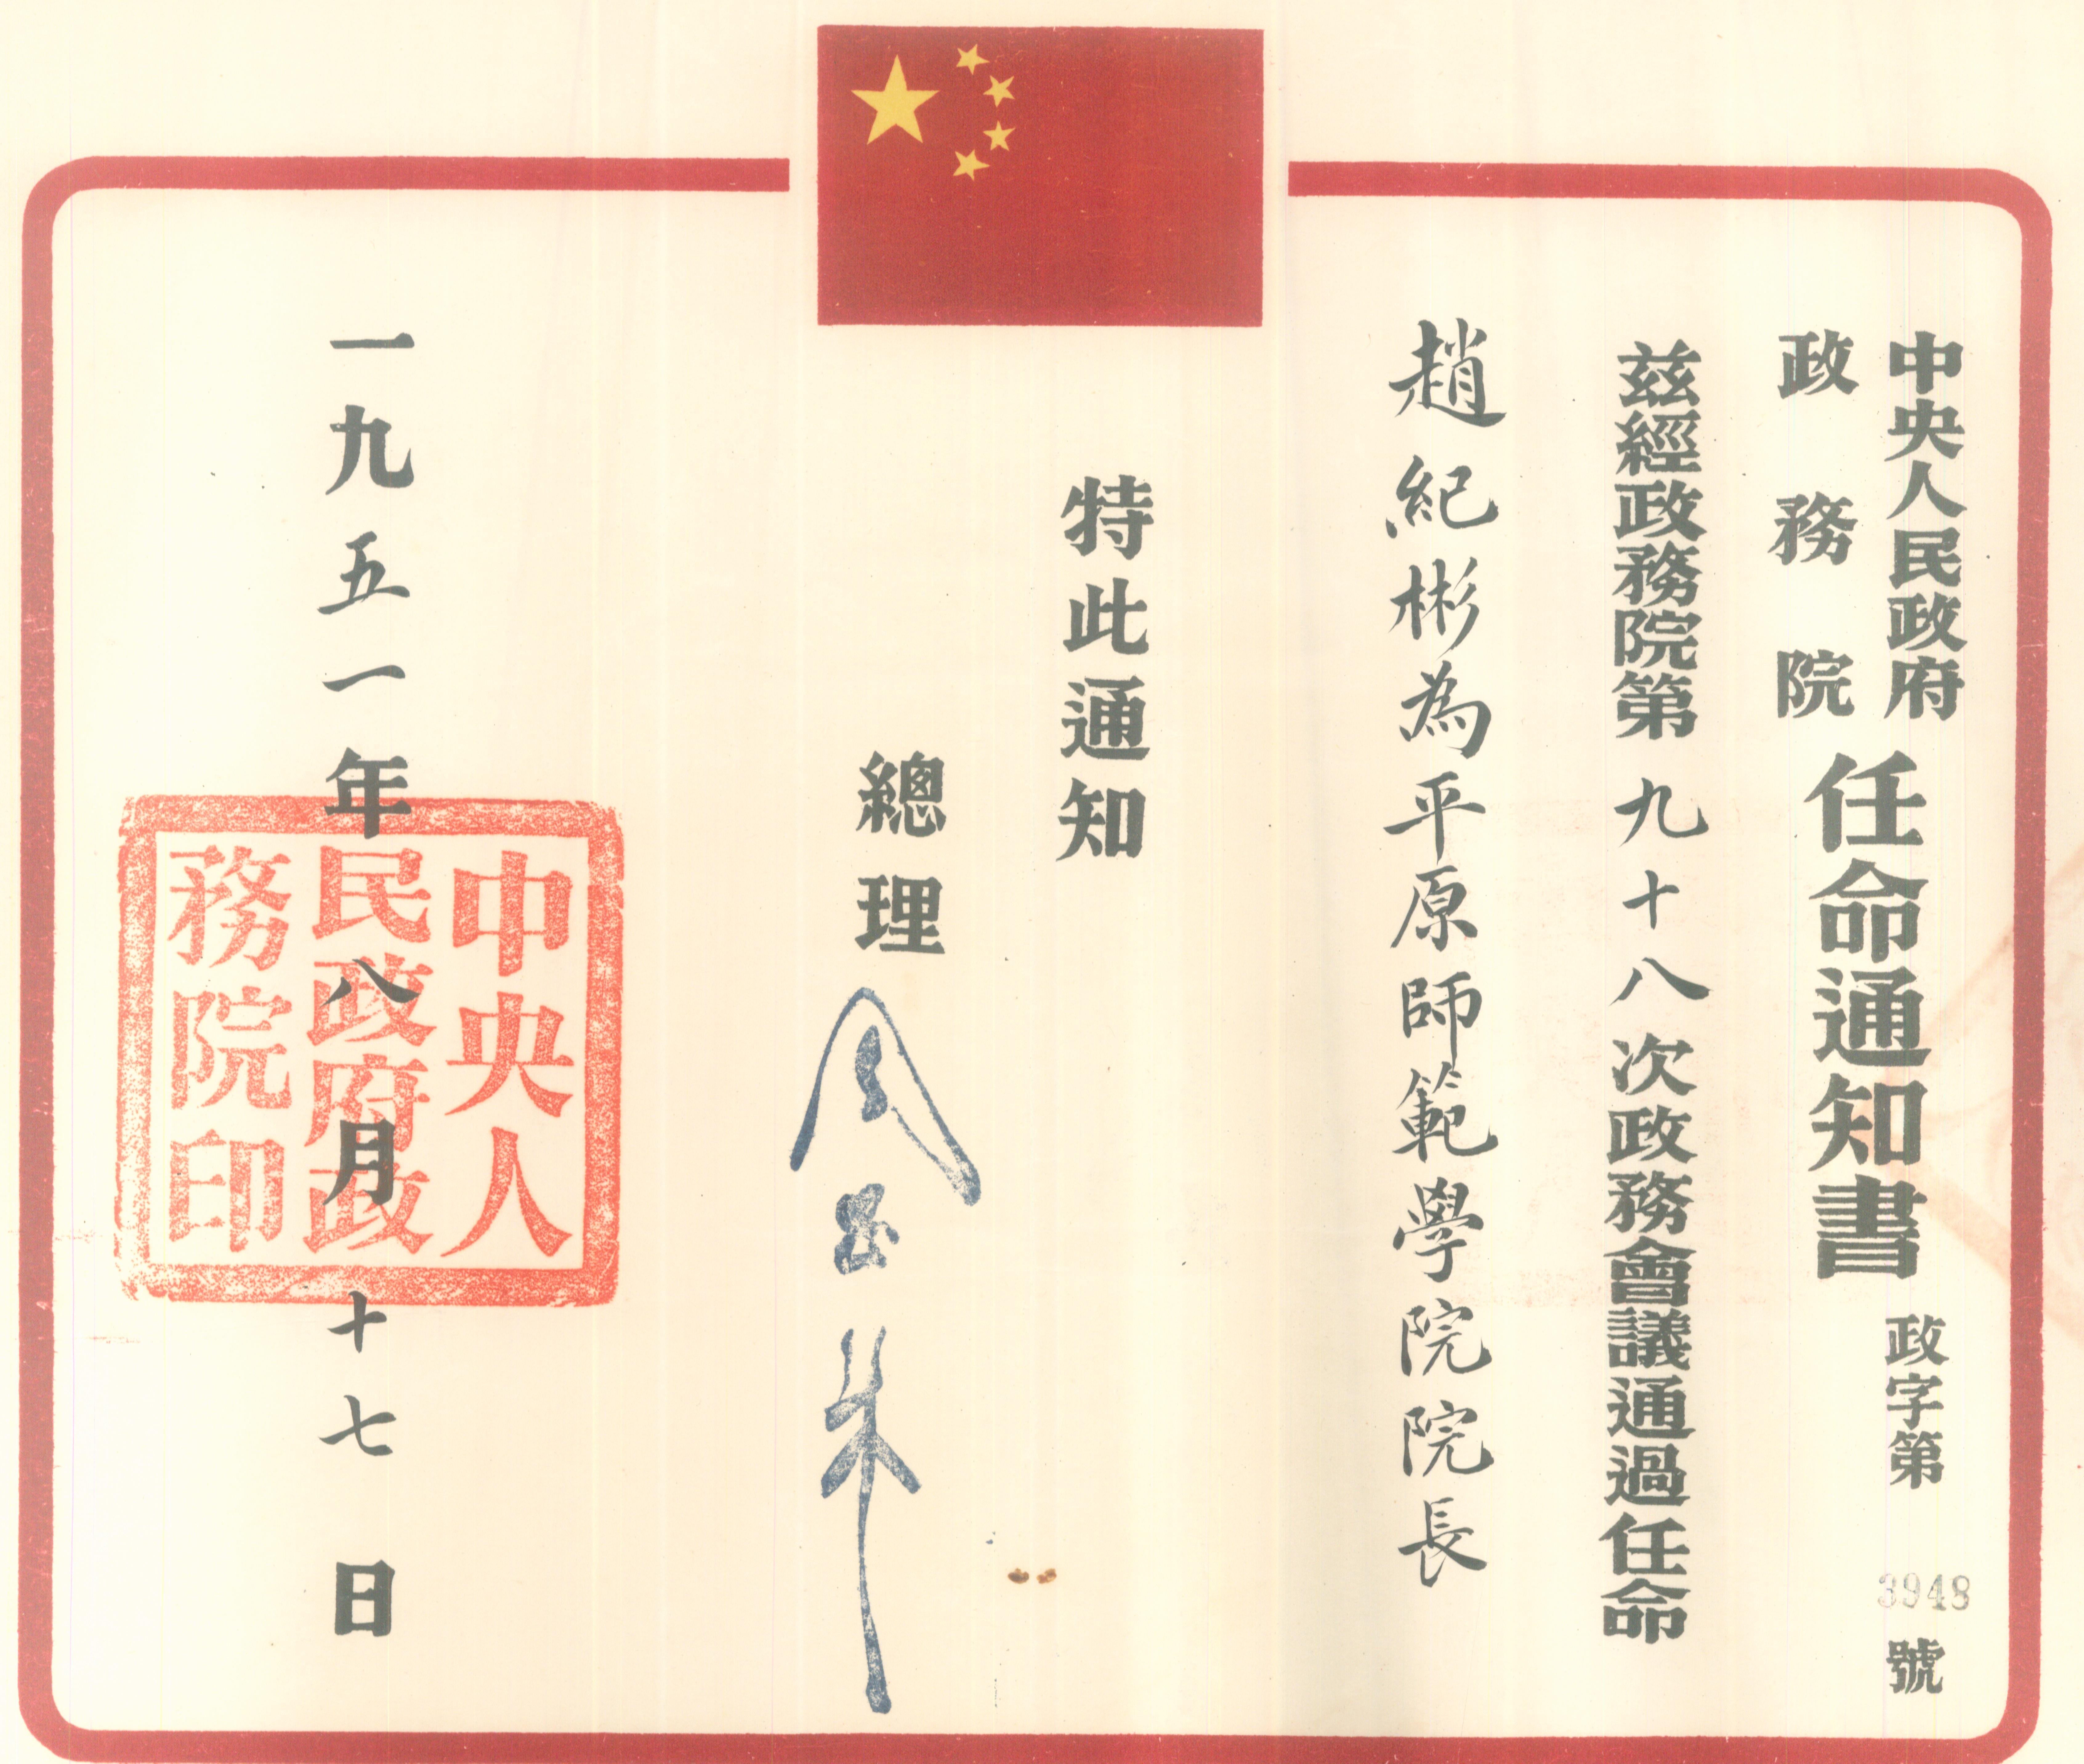 中央人民政府
政務院
任命通知書
政字第3948號
兹經政務院第九十八次政務會議通過任命
趙紀彬為平原師範學院院長
特此通知
總理
周恩來
一九五一年八月十七日
中央人
民政府政
務院印